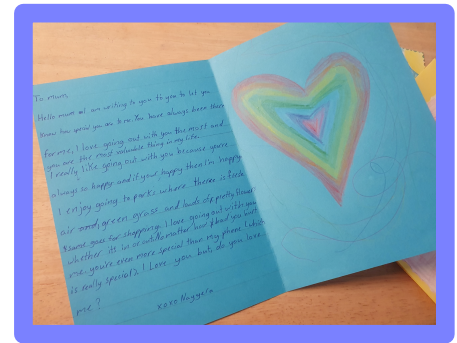 To mum,
Hello mum. I am writing to you to let you
know how special you are to me. You have always been there
for me, I love going out with you the most and
you are the most valuable thing in my life.
I really like going out with you because your
always so happy and if your happy then I'm happy
I enjoy going to parks where there is fresh
air green grass and loads of pretty flowers
same goes for shopping. I love going out with you
whether its in or out no matter how bad you
me, you're even more special than my phone
is really special? I Love you but do you love
me?
xoxo